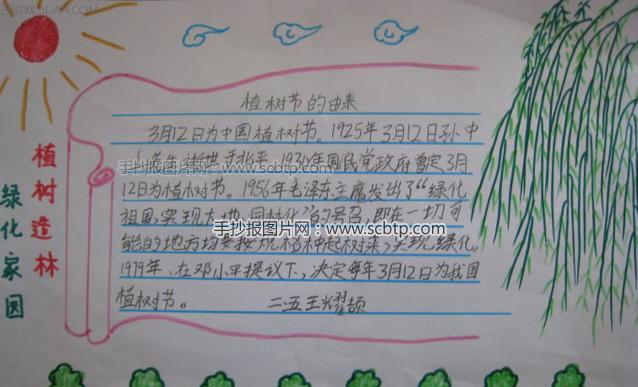 三联网 3LIAN.COM
植树造林
绿化家园
植树节的由来
3月12日为中国植树节。1925年3月12日孙中
山先生逝世于北平，1930年国民党政府暂定3月
手抄报图片网：www.scbtp.com
12日为植树节。1956年毛泽东主席发出了“绿化
祖国，实现大地园林化”的号召，即在一切可
手抄报图片网：www.scbtp.com
能的地方均要按规格种起树来，实现绿化。
1979年，在邓小平提议下，决定每年3月12日为我国
植树节。 二五王耀
手抄报图片网：www.scbtp.com